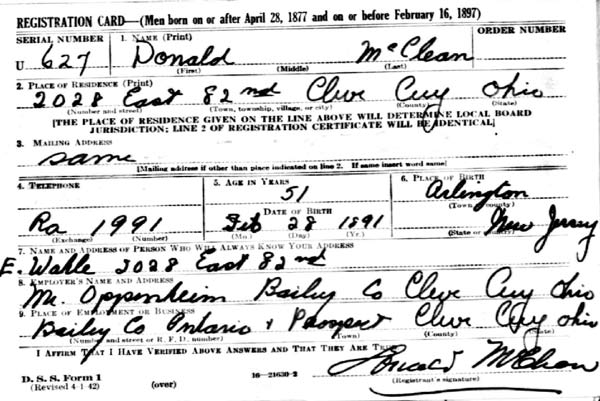 REGISTRATION CARD—(Men born on or after April 28, 1877 and on or before February 16, 1897)
SERIAL NUMBER 1. NAME (Print) ORDER NUMBER
U 627 Donald McClean
(First) (Middle) (Last)
2. PLACE OF RESIDENCE (Print)
2028 East 82nd Cleve Cuy Ohio
(Number and street) (Town, township, village, or city) (County) (State)
[THE PLACE OF RESIDENCE GIVEN ON THE LINE ABOVE WILL DETERMINE LOCAL BOARD
JURISDICTION; LINE 2 OF REGISTRATION CERTIFICATE WILL BE IDENTICAL]
3. MAILING ADDRESS
Same
[Mailing address if other than place indicated on line 2. If same insert word same]
4. TELEPHONE 5. AGE IN YEARS 6. PLACE OF BIRTH
51 Arlington
DATE OF BIRTH (Town or county)
Ra 1991 Feb 28 1891 New Jersey
(Exchange) (Number) (Mo.) (Day) (Yr.) (State or country)
7. NAME AND ADDRESS OF PERSON WHO WILL ALWAYS KNOW YOUR ADDRESS
E. Wahle 2028 East 82nd
8. EMPLOYER'S NAME AND ADDRESS
Mr. Oppenheim Bailey Co Cleve Cuy Ohio
9. PLACE OF EMPLOYMENT OR BUSINESS
Bailey Co Ontario + Prospect Cleve Cuy Ohio
(Number and street or R. F. D. number) (Town) (County) (State)
I AFFIRM THAT I HAVE VERIFIED ABOVE ANSWERS AND THAT THEY ARE TRUE.
Donald McClean
D. S. S. Form 1
(Revised 4-1-42) (over) 16—21630-2 (Registrant's signature)